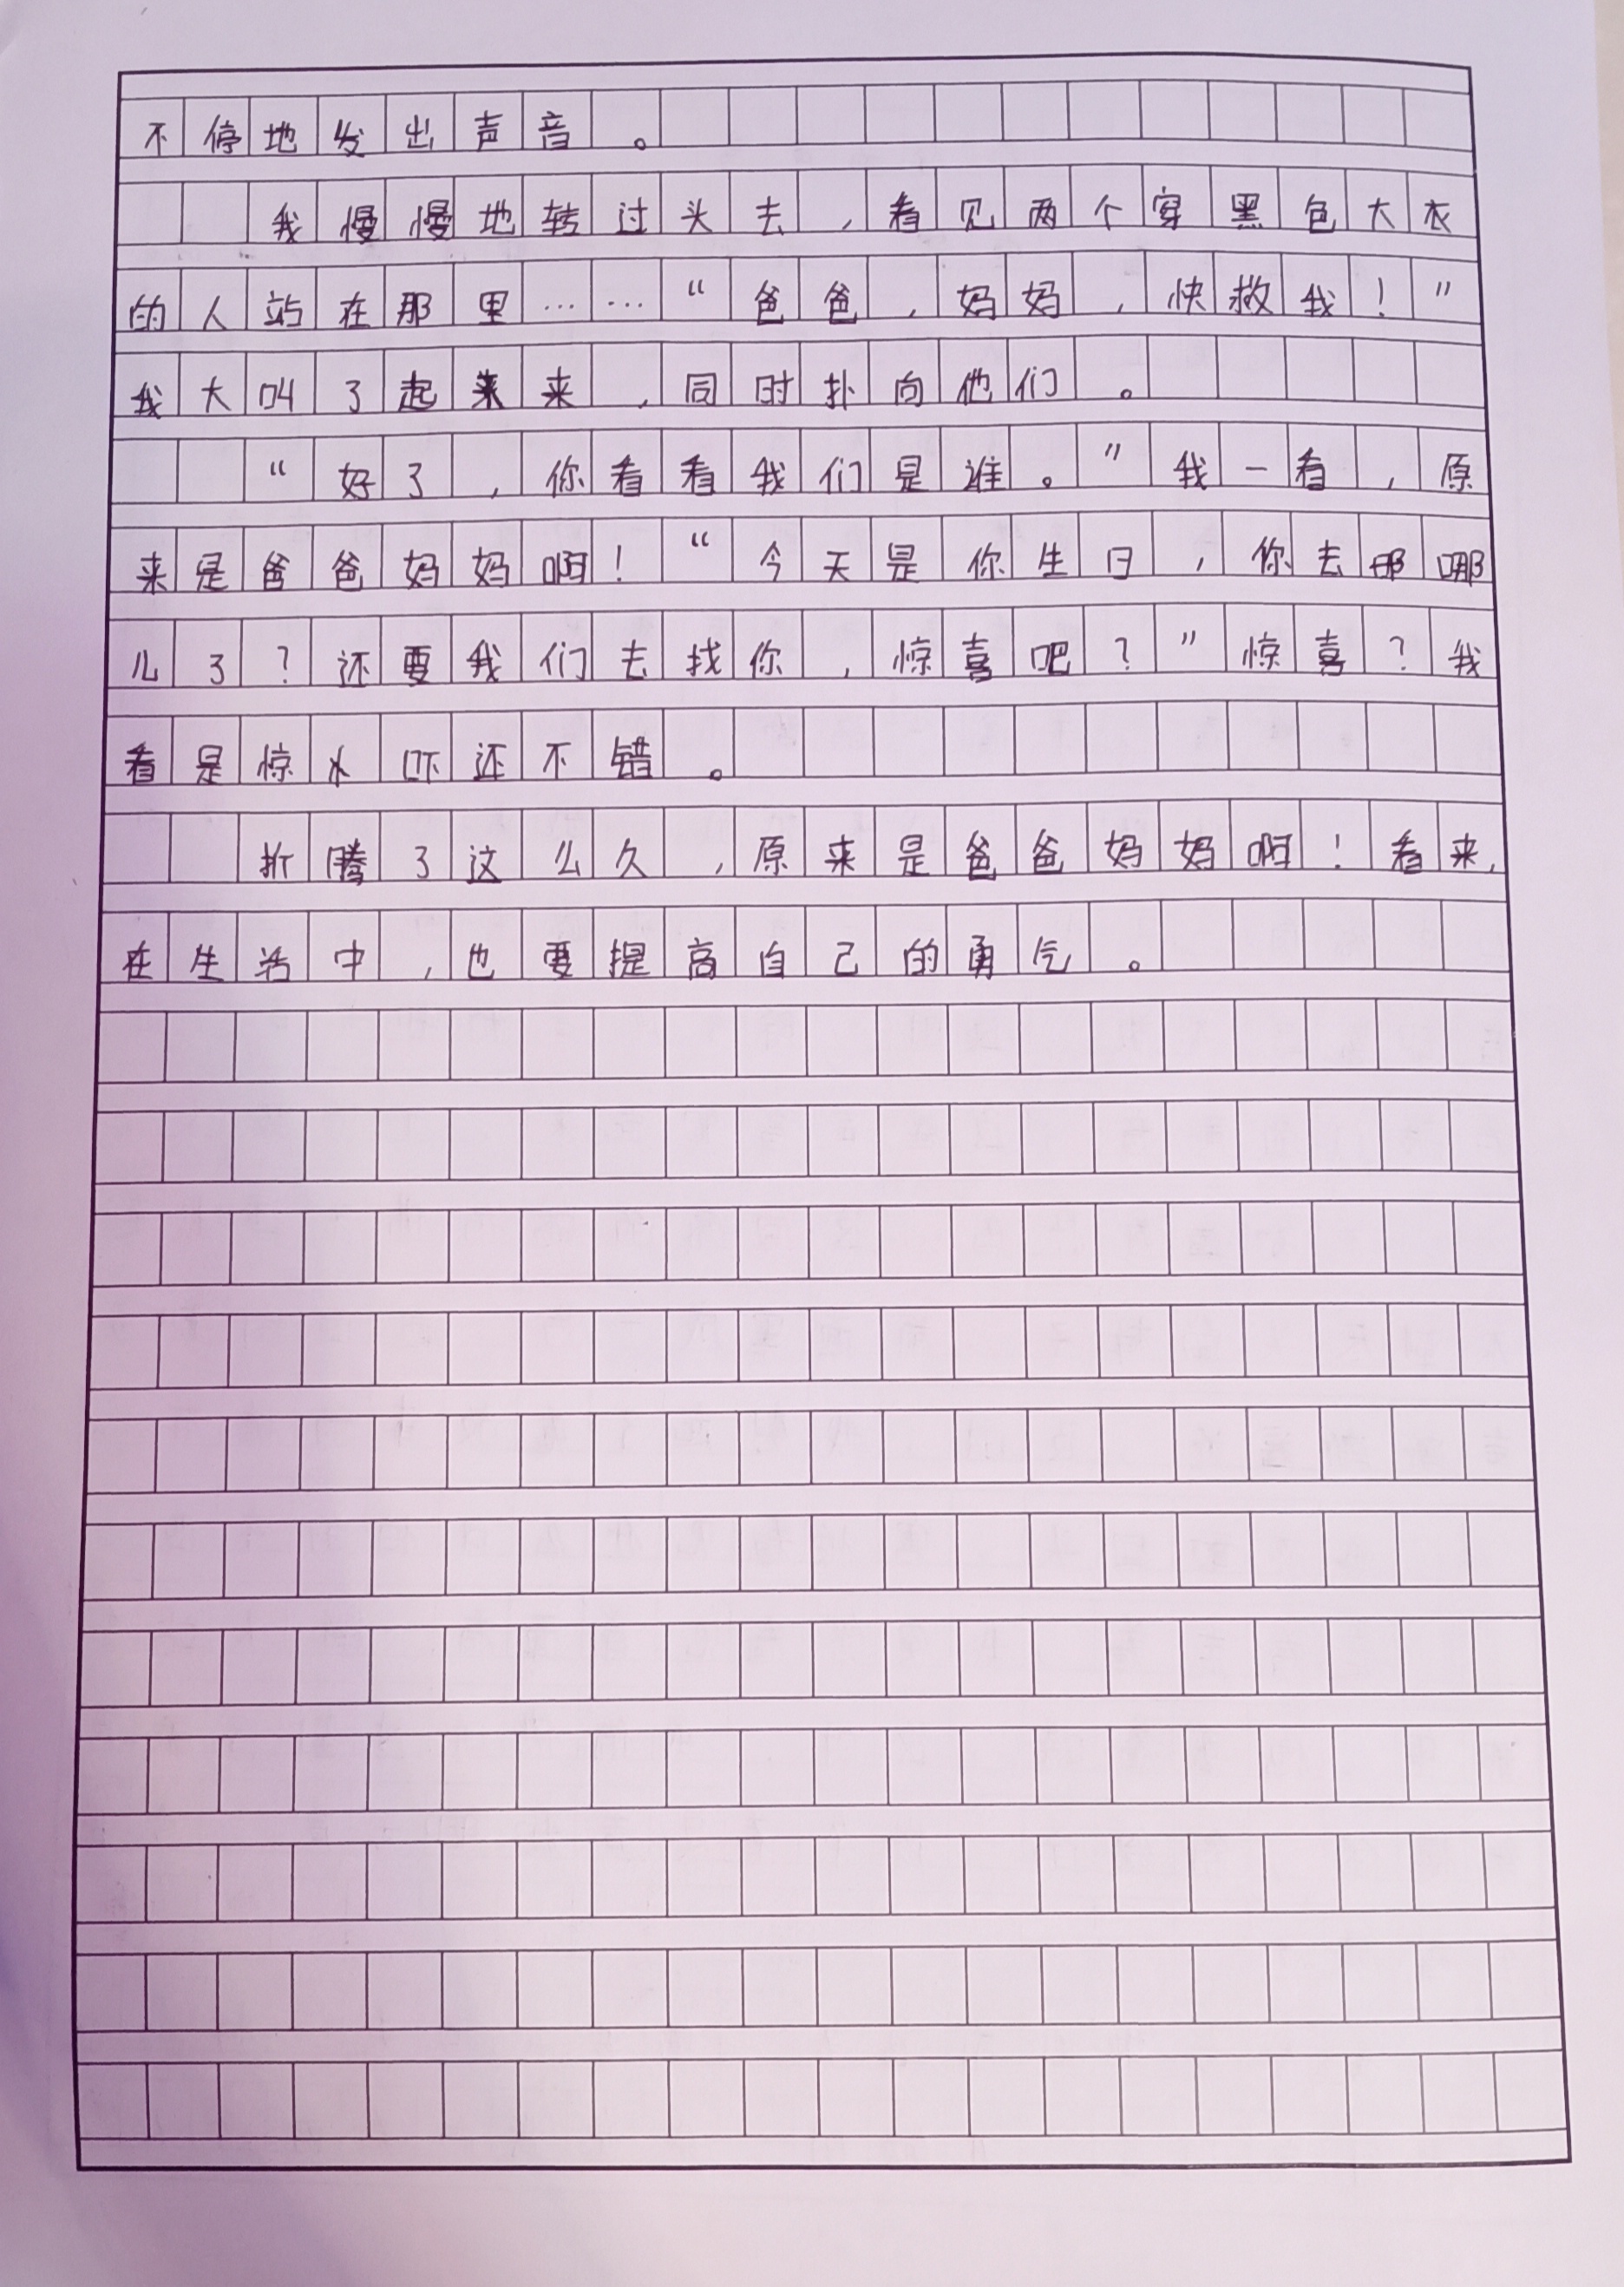 不停地发出声音。
我慢慢地转过头去,看见两个穿黑色大衣
的人站在那里……“爸爸,妈妈,快救我!”
我大叫了起来,同时扑向他们。
“好了,你看看我们是谁。”我一看,原
来是爸爸妈妈啊!“今天是你生日,你去哪
儿了?还要我们去找你,惊喜吧?”惊喜?我
看是惊吓还不错。
折腾了这么久,原来是爸爸妈妈啊!看来,
在生活中,也要提高自己的勇气。